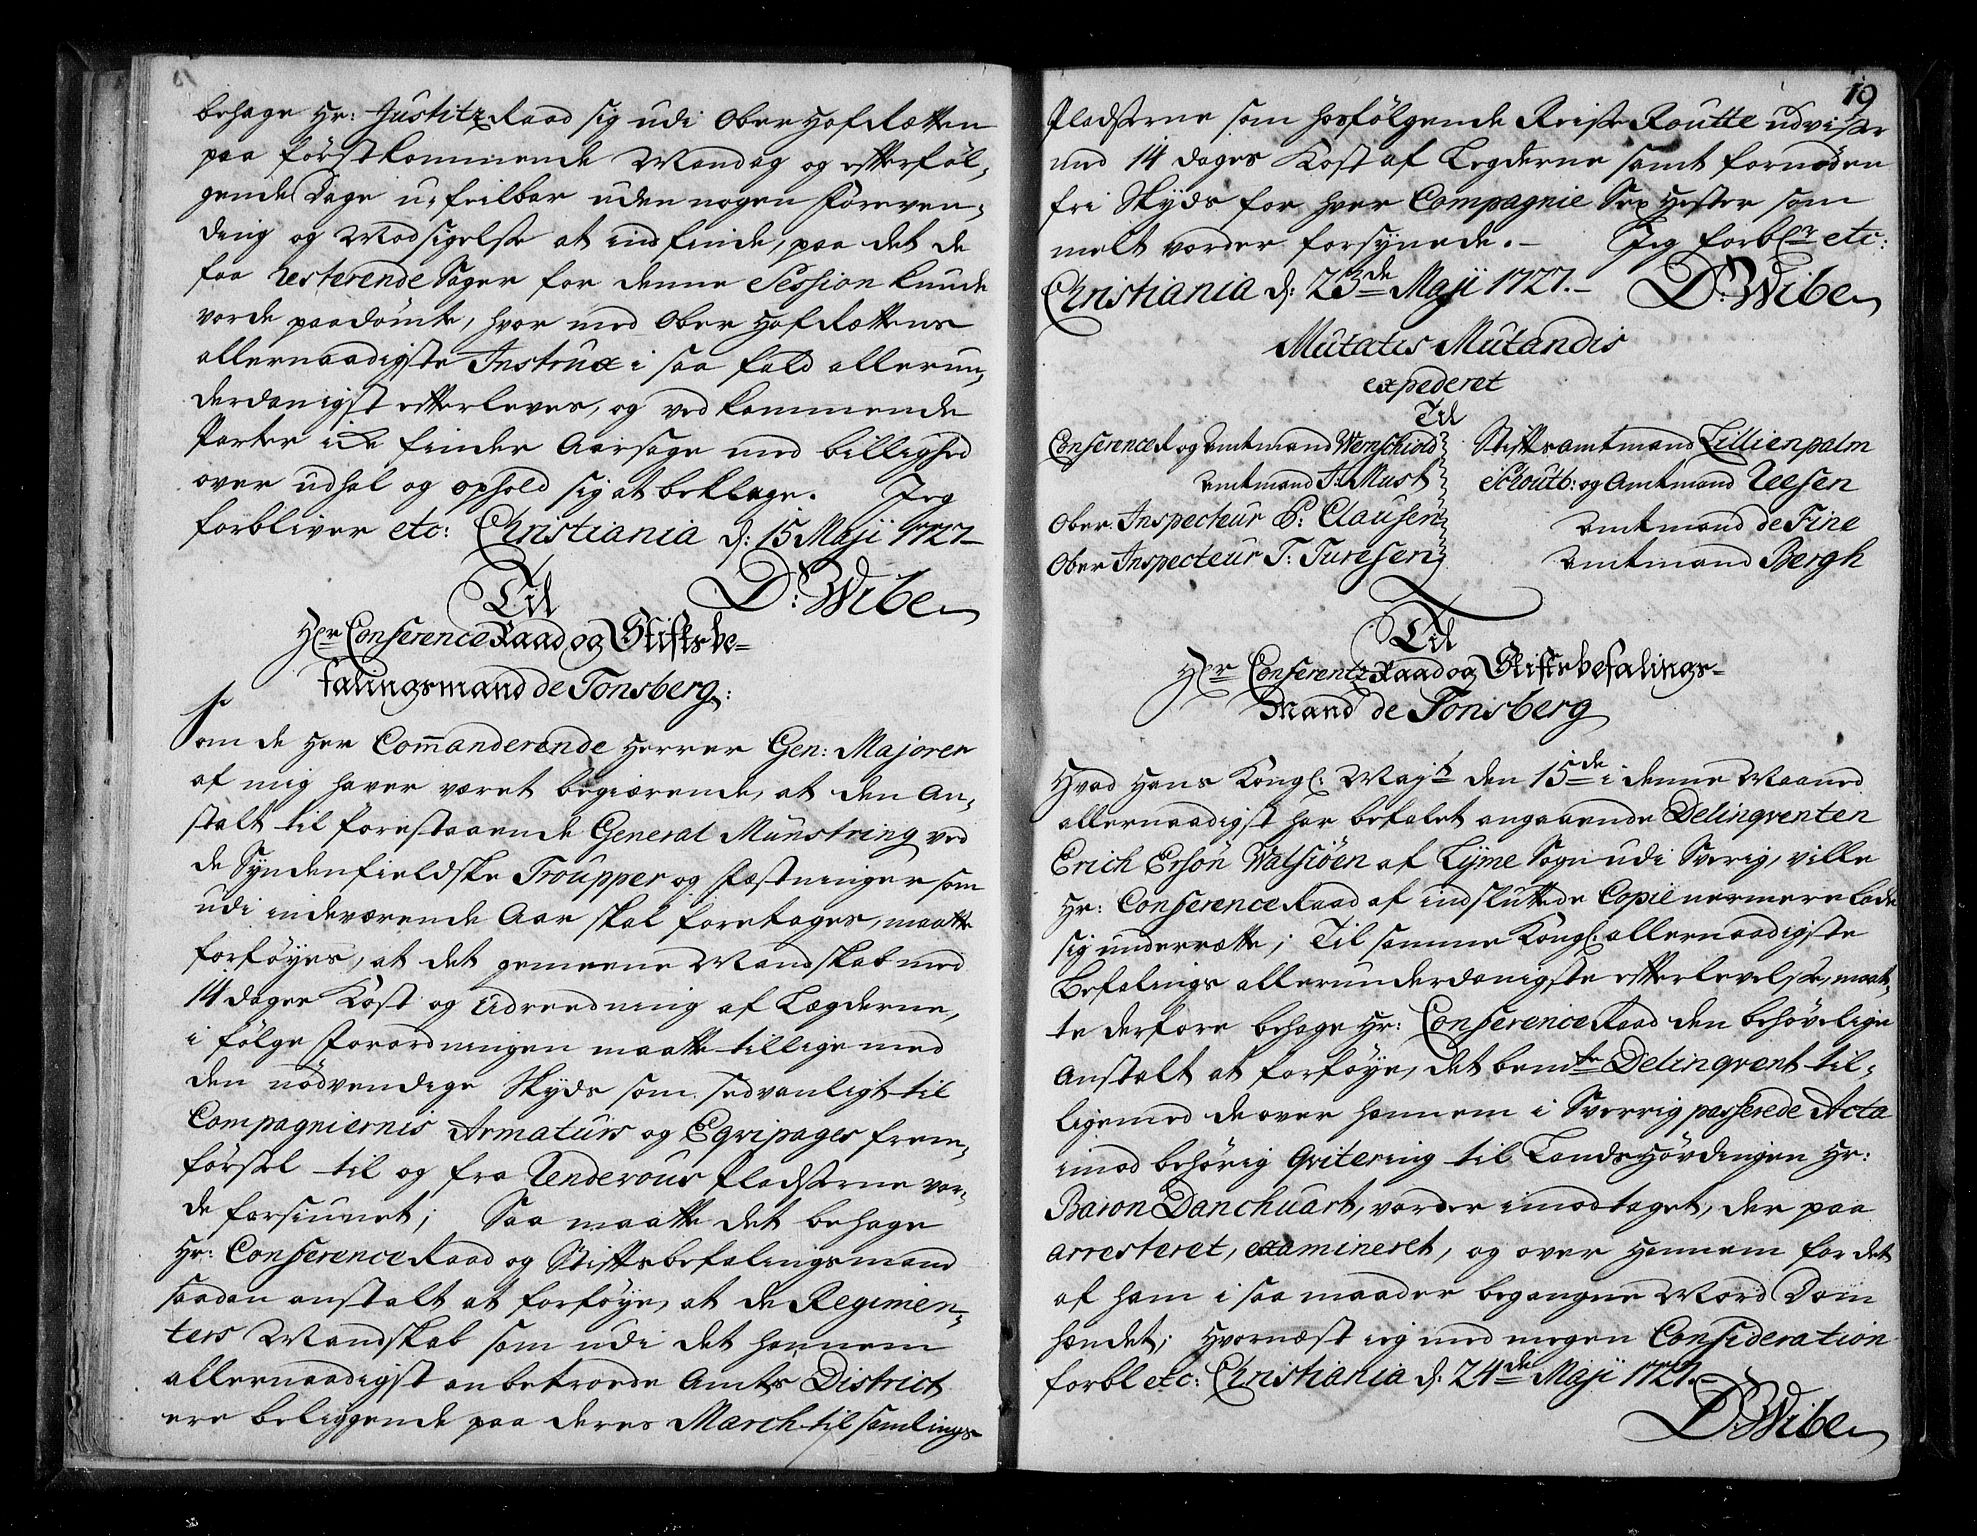 behage Hr: JustitzRaad sig udi Ober HofRetten
paa førstkommende Mandag og efterføl,,
gende Dage u,,feilbar uden nogen Foreven,,
ding og Modsigelse at indfinde, paa det de
faa resterende Sager for denne Session kunde
vorde paadømte, hvor med Ober HofRettens
allernaadigste Instrux i saa fald allerun,,
derdanigst efterleves, og vedkommende
Parter icke finder Aarsage med billighed
over udhal og ophold sig at beklage. Jeg
forbliver etc: Christiania d: 15 Maji 1727_
D: Wibe
Til
Hr Conference Raad og Stiftsbe=
falingsmand de Tonsberg:
Som de Her Commanderende Herrer Gen: Majorer
af mig haver været begiærende, at den An,,
stalt til forestaaende General Münstring ved
de Syndenfieldske Troupper og Fæstninger som
udi indeværende Aar skal foretages, maatte
forføyes, at det gemeene Mandskab med
14 dages Kost og Udreedning af Lægderne,
i følge Forordningen maatte tillige med
den nödvendige Skyds som sedvanligt til
Compagniernis Armaturs og Eqvipages frem,,
førsel til og fra Rendevous Pladserne vor,,
de forsiunet; Saa maatte det behage
Hr: Conference Raad og Stiftsbefalingsmand
saadan anstalt at forføye, at de Regimen,,
ters Mandskab som udi det hannem
allernaadigst anbetroede Amts District
ere beliggende paa deres March til samlings
19
Pladserne som hosfølgende Reise Routte udviser
med 14 dages Kost af Legderne samt fornøden
fri Skyds for hver Compagnie Sex Hester som
melt vorder forsynede._ Jeg forblr etc:
Christiania d: 23de Maji 1727._ D: Wibe
Mutatis Mutandis
expederet
Til
ConferenceR og Amtmand Wernschiold Stiftsamtmand Lillienpalm
Amtmand J: Must Schoutb: og Amtmand Uesen
Ober Inspecteur P: Clausen Amtmand de Fine
Ober Inspecteur T: Turesen Amtmand Bergh
Til
Hr Conferentz Raad og Stiftsbefalings=
Mand de Tonsberg
Hvad Hans Kongl: Mayt den 15de i denne Maaned
allernaadigst har befalet angaaende Delinqventen
Erich Ersön Valsiöen af Lyme Sogn udi Sverig, ville
Hr: Conference Raad af indsluttede Copie nermere lade
sig underrætte; Til samme Kongl: allernaadigste
Befalings allerunderdanigste efterlevelse, maat,,
te derfore behage Hr: Conference Raad den behøvelige
Anstalt at forføye, det bemte Delinqvent til,,
ligemed de over hannem i Sverrig passerede Acta
imod behörig Qvitering til LandsHövdingen Hr:
Baron Danchuart, vorder imodtaget, der paa
arresteret, examineret, og over Hannem for det
af ham i saa maader begangne Mord Dom
hændet; Hvornæst ieg med megen Consideration
forbl etc: Christiania d: 24de Maji 1727._
D: Wibe